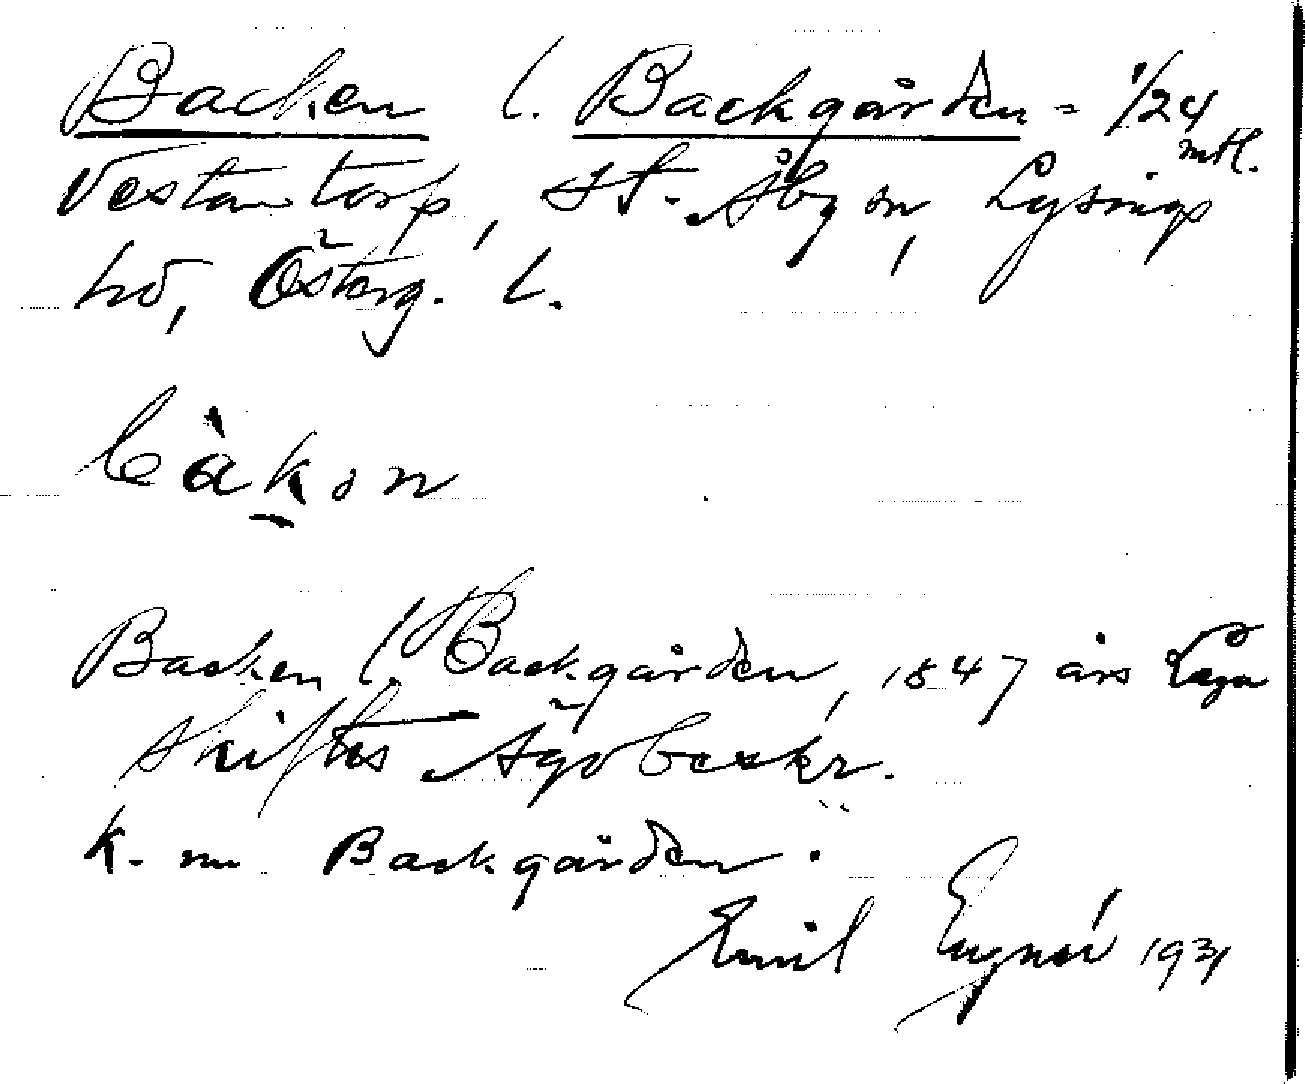 Backen l. Backgården = 1/24 mtl.
Vestantorp, St. Åby sn, Lysings
hd, Österg. l.
bàkon
Backen l. Backgården, 1847 års Laga
skiftes Ägobeskr.
k. nu Backgården.
Emil 1931